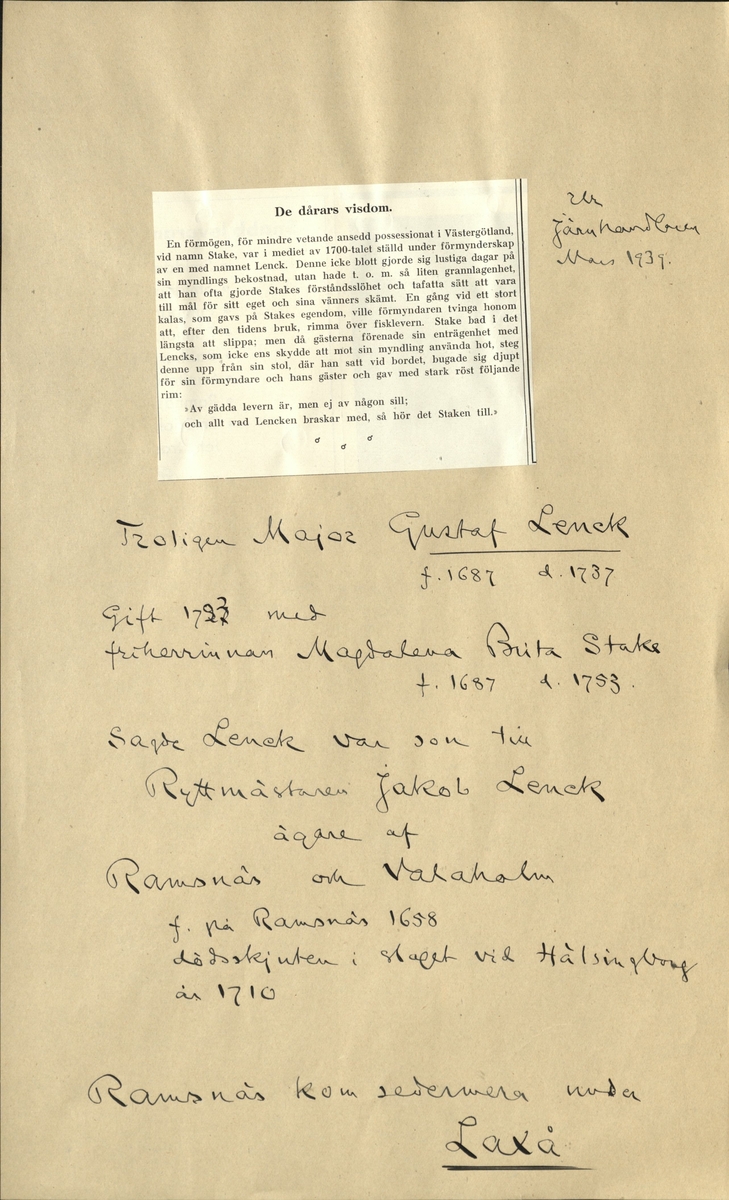 De dårars visdom.
En förmögen, för mindre vetande ansedd possessionat i Västergötland,
vid namn Stake, var i mediet av 1700-talet ställd under förmynderskap
av en med namnet Lenck. Denne icke blott gjorde sig lustiga dagar på
sin myndlings bekostnad, utan hade t. o. m. så liten grannlagenhet,
att han ofta gjorde Stakes förståndsslöhet och tafatta sätt att vara
till mål för sitt eget och sina vänners skämt. En gång vid ett stort
kalas, som gavs på Stakes egendom, ville förmyndaren tvinga honom
att, efter den tidens bruk, rimma över fisklevern. Stake bad i det
längsta att slippa; men då gästerna förenade sin enträgenhet med
Lencks, som icke ens skydde att mot sin myndling använda hot, steg
denne upp från sin stol, där han satt vid bordet, bugade sig djupt
för sin förmyndare och hans gäster och gav med stark röst följande
rim:
»Av gädda levern är, men ej av någon sill;
och allt vad Lencken braskar med, så hör det Staken till.»
ur
Järnhandlaren
Mars 1939.
Troligen Major Gustaf Lenck
f. 1687 d. 1737
Gift med
friherrinnan Magdalena Brita Stake
f. 1687 d. 1753.
Sagde Lenck var son till
Ryttmästaren Jakob Lenck
ägare af
Ramsnäs och Valaholm
f. på Ramsnäs 1658
dödsskjuten i slaget vid Hälsingborg
år 1710
Ramsnäs kom sedermera under
Laxå